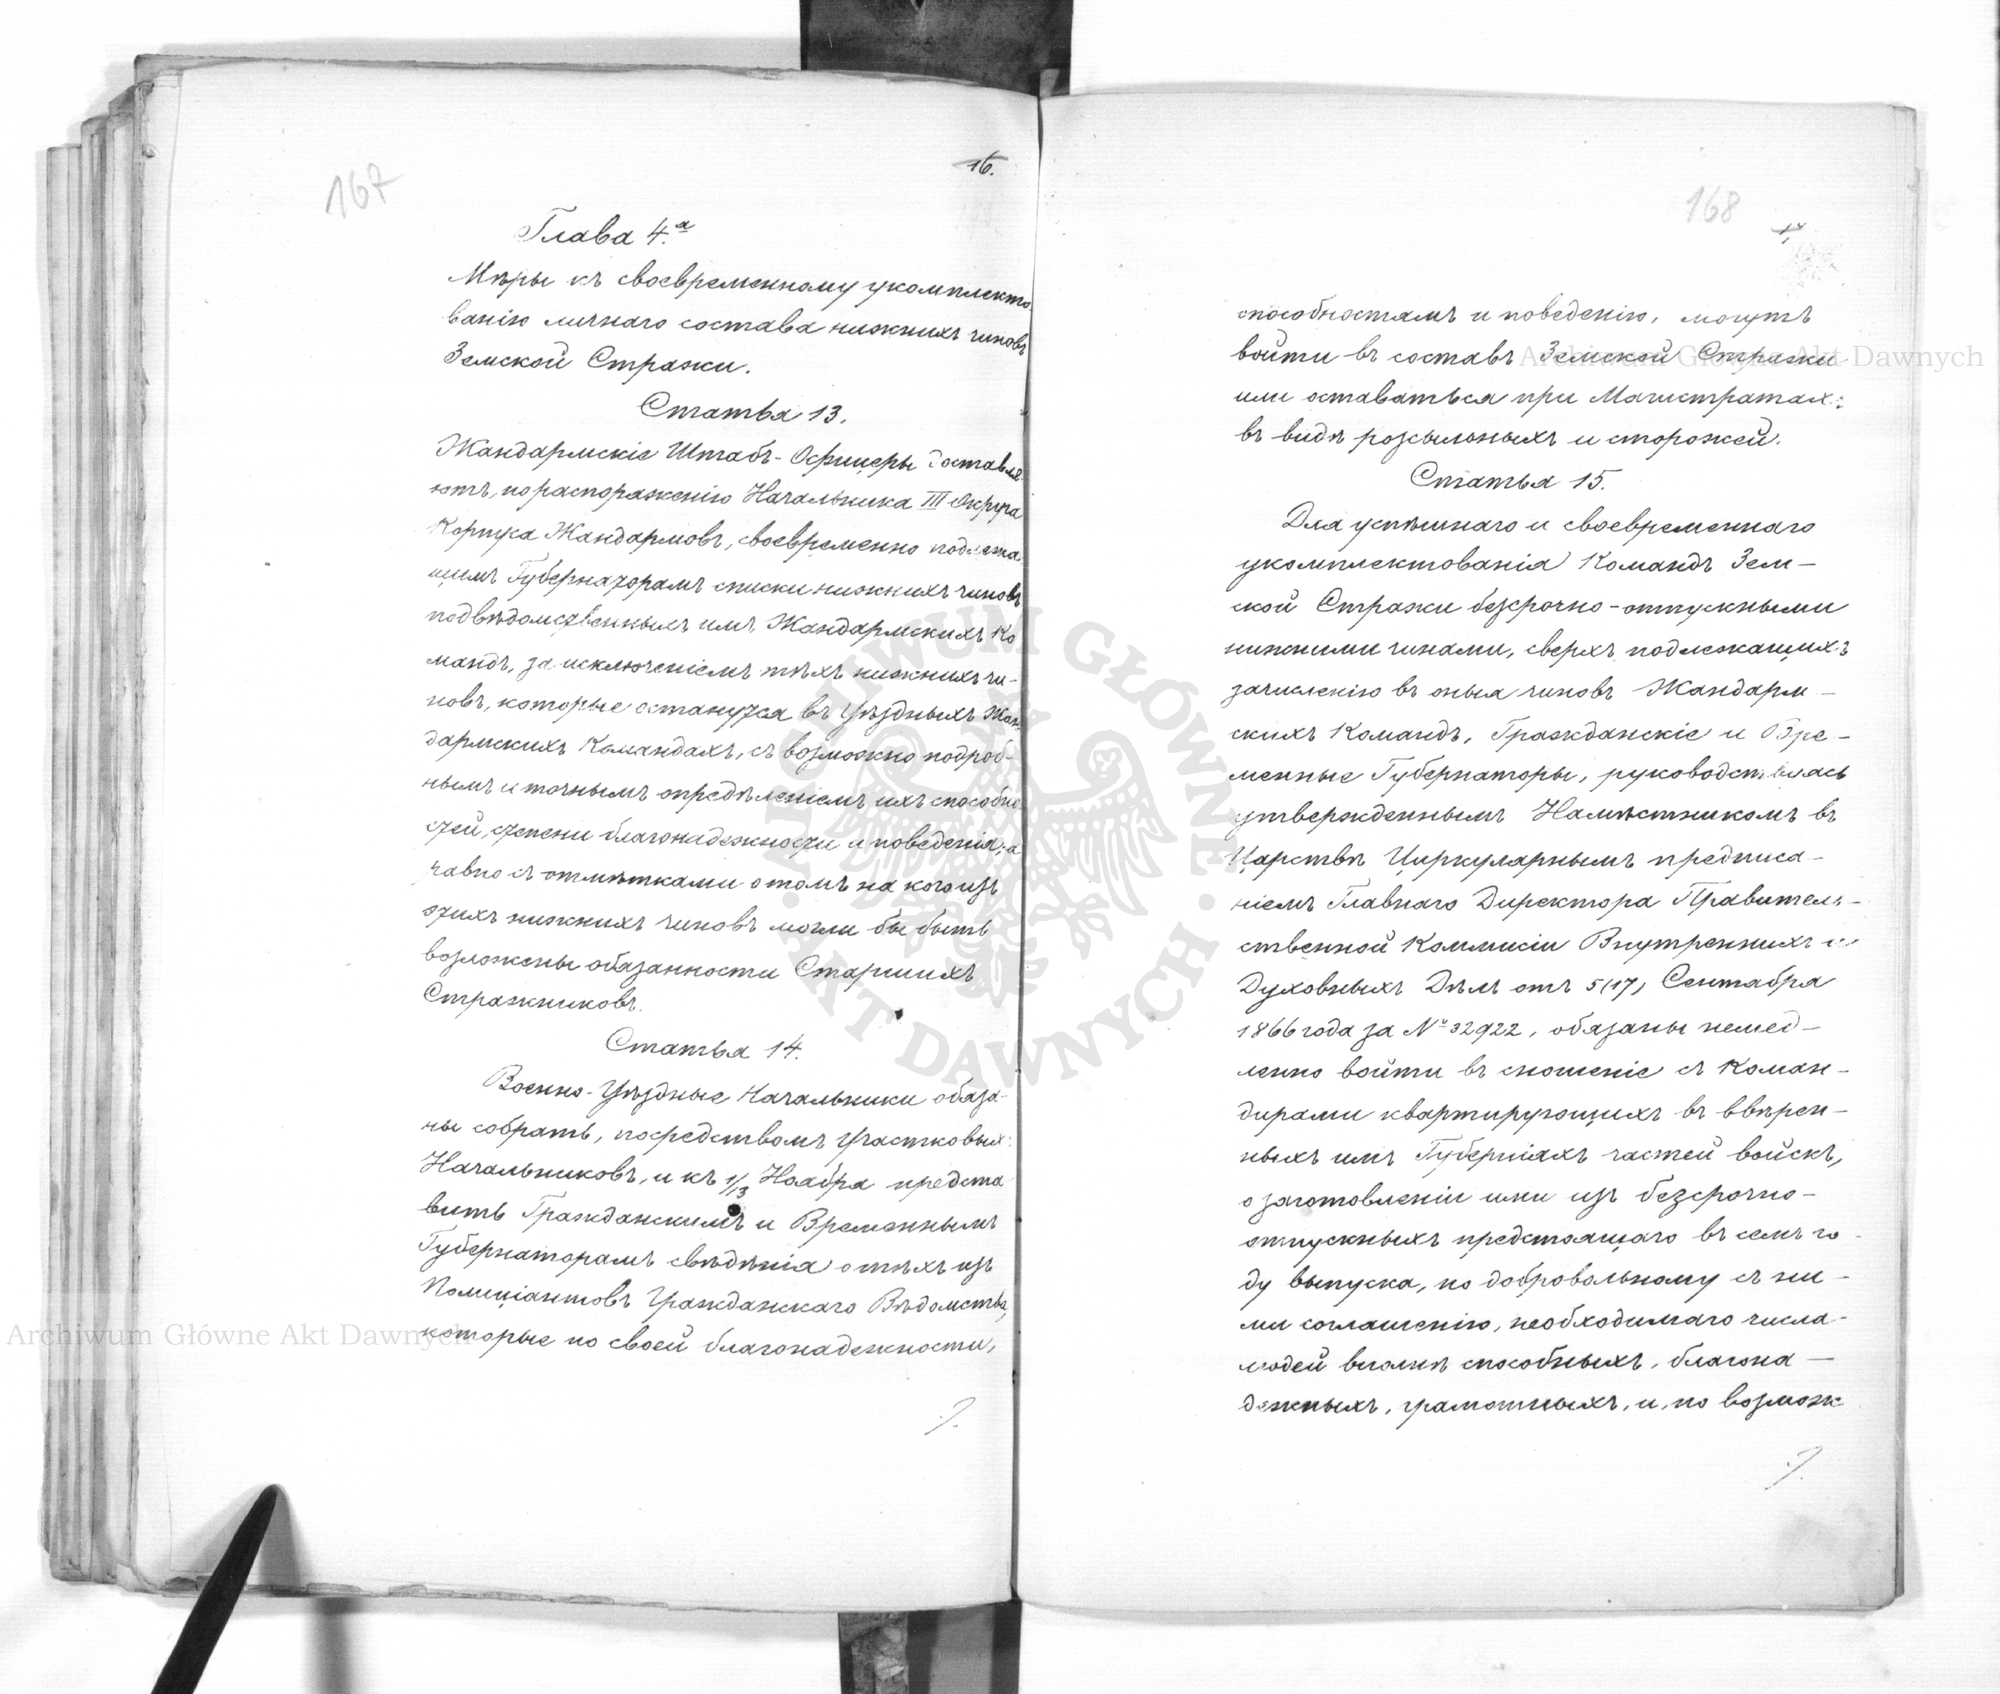 167
16.
Глава 4.а
Мѣры къ своевременному укомплекто
ванію личнаго состава нижнихъ чиновъ
Земской Стражи.
Статья 13.
Жандармскіе Штабъ-Офицеры доставля-
ютъ, по распоряженію Начальника III Округа
Корпуса Жандармовъ, своевременно подлежа-
щимъ Губернаторамъ списки нижнихъ чиновъ
подвѣдомственныхъ имъ Жандармскихъ Ко
мандъ, за исключеніемъ тѣхъ нижнихъ чи-
новъ, которые останутся въ Уѣздныхъ Жан-
дармскихъ Командахъ, съ возможно подроб-
нымъ и точнымъ опредѣленіемъ ихъ способно
стей, степени благонадежности и поведенія, а
равно съ отмѣтками о томъ на кого изъ
этихъ нижнихъ чиновъ могли бы быть
возложены обязанности Старшихъ
Стражниковъ.
Статья 14.
Военно-Уѣздные Начальники обяза-
ны собрать, посредствомъ Участковыхъ
Начальниковъ, и къ 1/13 Ноября предста
вить Гражданскимъ и Временнымъ
Губернаторамъ свѣдѣнія о тѣхъ изъ
Полиціантовъ Гражданскаго Вѣдомства,
которые по своей благонадежности,
168
способностямъ и поведенію, могутъ
войти въ составъ Земской Стражи
или оставаться при Магистратахъ
въ видѣ розсыльныхъ и сторожей.
Статья 15.
Для успѣшнаго и своевременнаго
укомплектованія Командъ Зем-
ской Стражи безсрочно-отпускными
нижними чинами, сверхъ подлежащихъ
зачисленію въ оныя чиновъ Жандарм-
скихъ Командъ, Гражданскіе и Вре-
менные Губернаторы, руководствуясь
утвержденнымъ Намѣстникомъ въ
Царствѣ Циркулярнымъ предписа-
ніемъ Главнаго Директора Правитель-
ственной Коммисіи Внутреннихъ и
Духовныхъ Дѣлъ отъ 5(17) Сентября
1866 года за № 32922, обязаны немед-
ленно войти въ сношеніе съ Коман-
дирами квартирующихъ въ ввѣрен-
ныхъ имъ Губерніяхъ частей войскъ,
о заготовленіи ими изъ безсрочно-
отпускныхъ предстоящаго въ семъ го-
ду выпуска, по добровольному съ ни-
ми соглашенію, необходимаго числа
людей вполнѣ способныхъ, благона-
дежныхъ, грамотныхъ, и, по возмож
Archiwum Główne Akt Dawnych
Archiwum Główne Akt Dawnych
ARCHIWUM GŁÓWNE • AKT DAWNYCH •